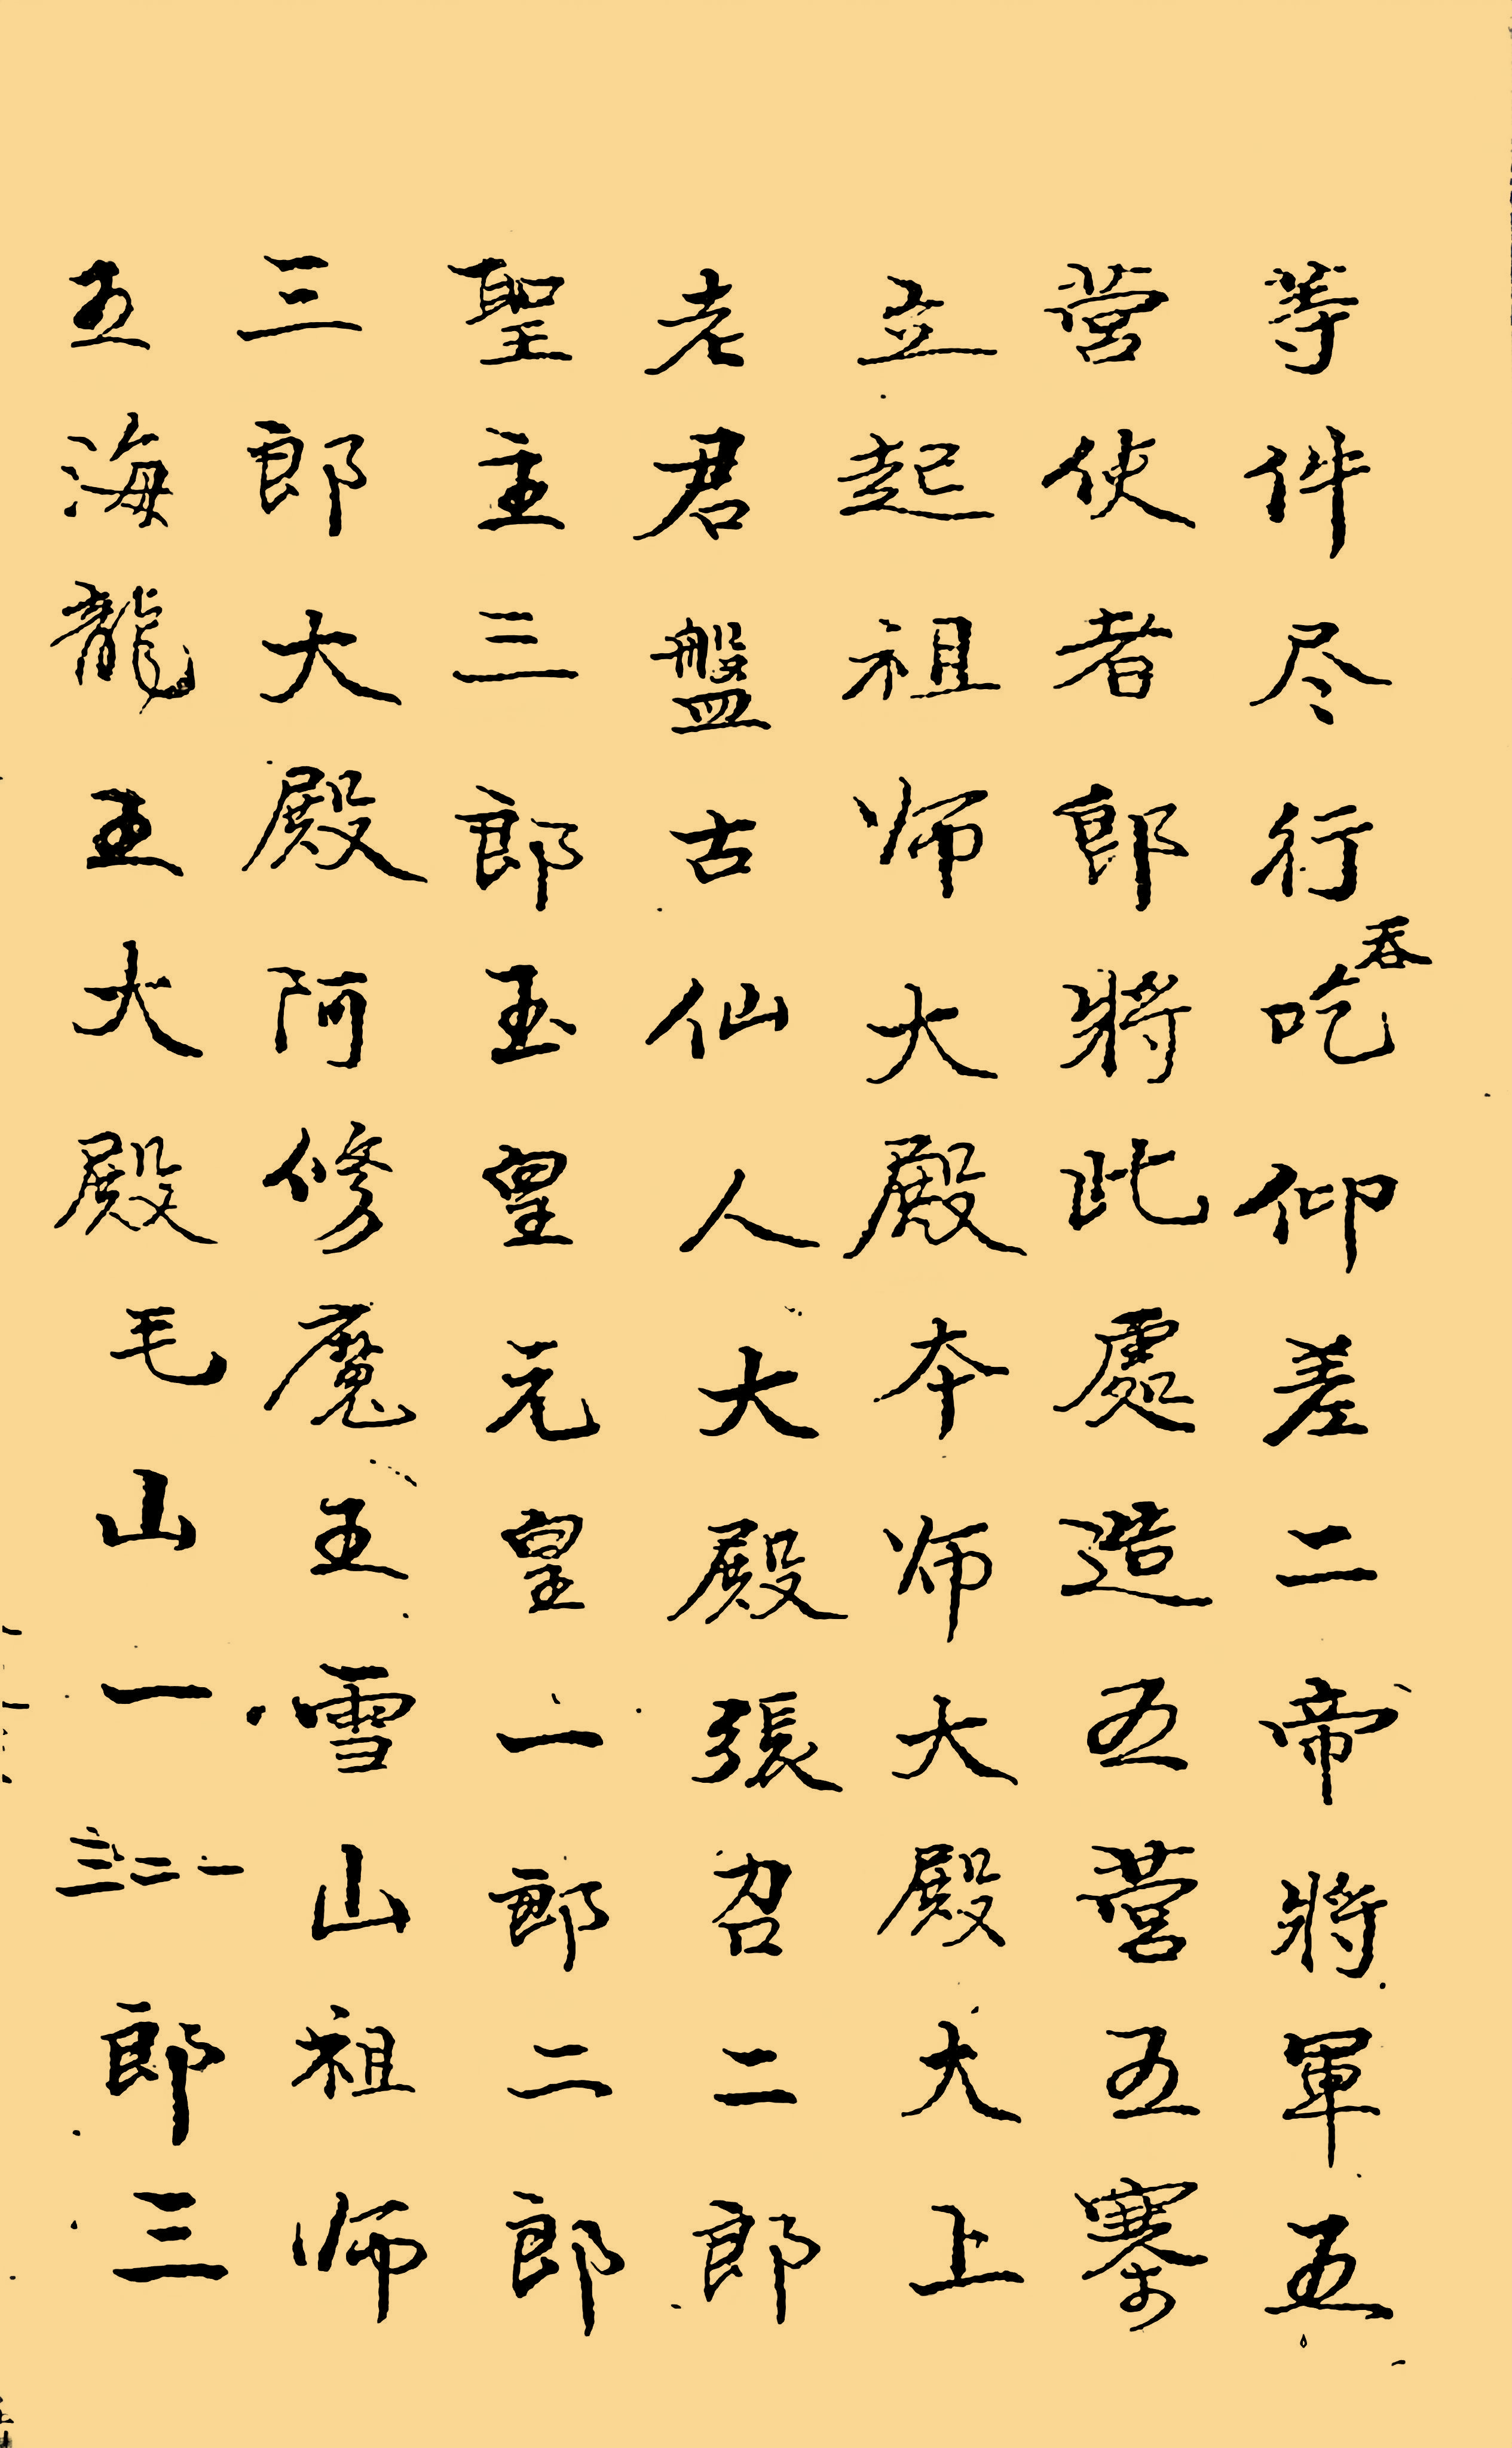 等件尽行吞吃仰差二帝將軍五
营使者郎將此處造五营五寨
立起祖师大殿本师大殿大上
老君盤古仙人大殿張召二郎
聖主三郎玉皇元皇一郎二郎
三郎大殿阿修魔五雪山祖师
五海龍王大殿毛山一二三郎三